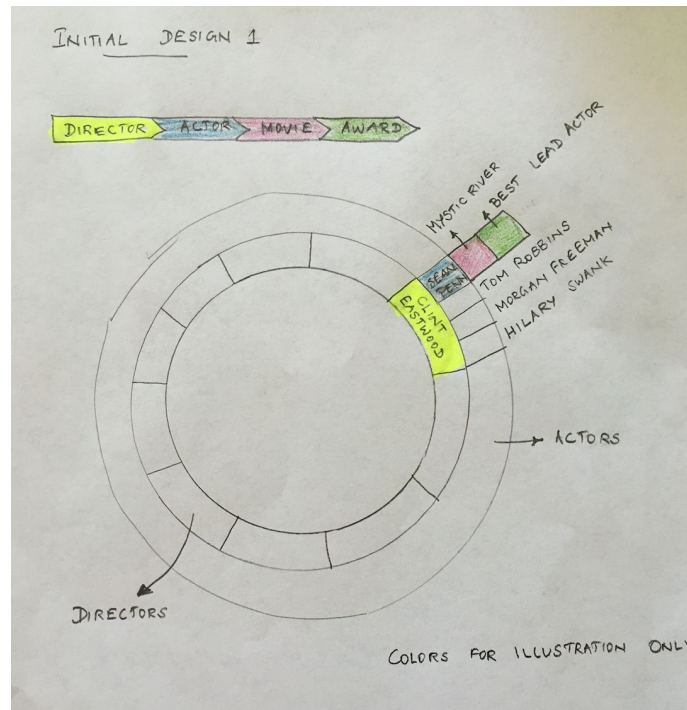 INITIAL DESIGN 1
DIRECTOR ACTOR MOVIE AWARD
MYSTIC RIVER
BEST LEAD ACTOR
SEAN
PENN
TOM ROBBINS
MORGAN FREEMAN
HILARY SWANK
CLINT
EASTWOOD
ACTORS
DIRECTORS
COLORS FOR ILLUSTRATION ONLY